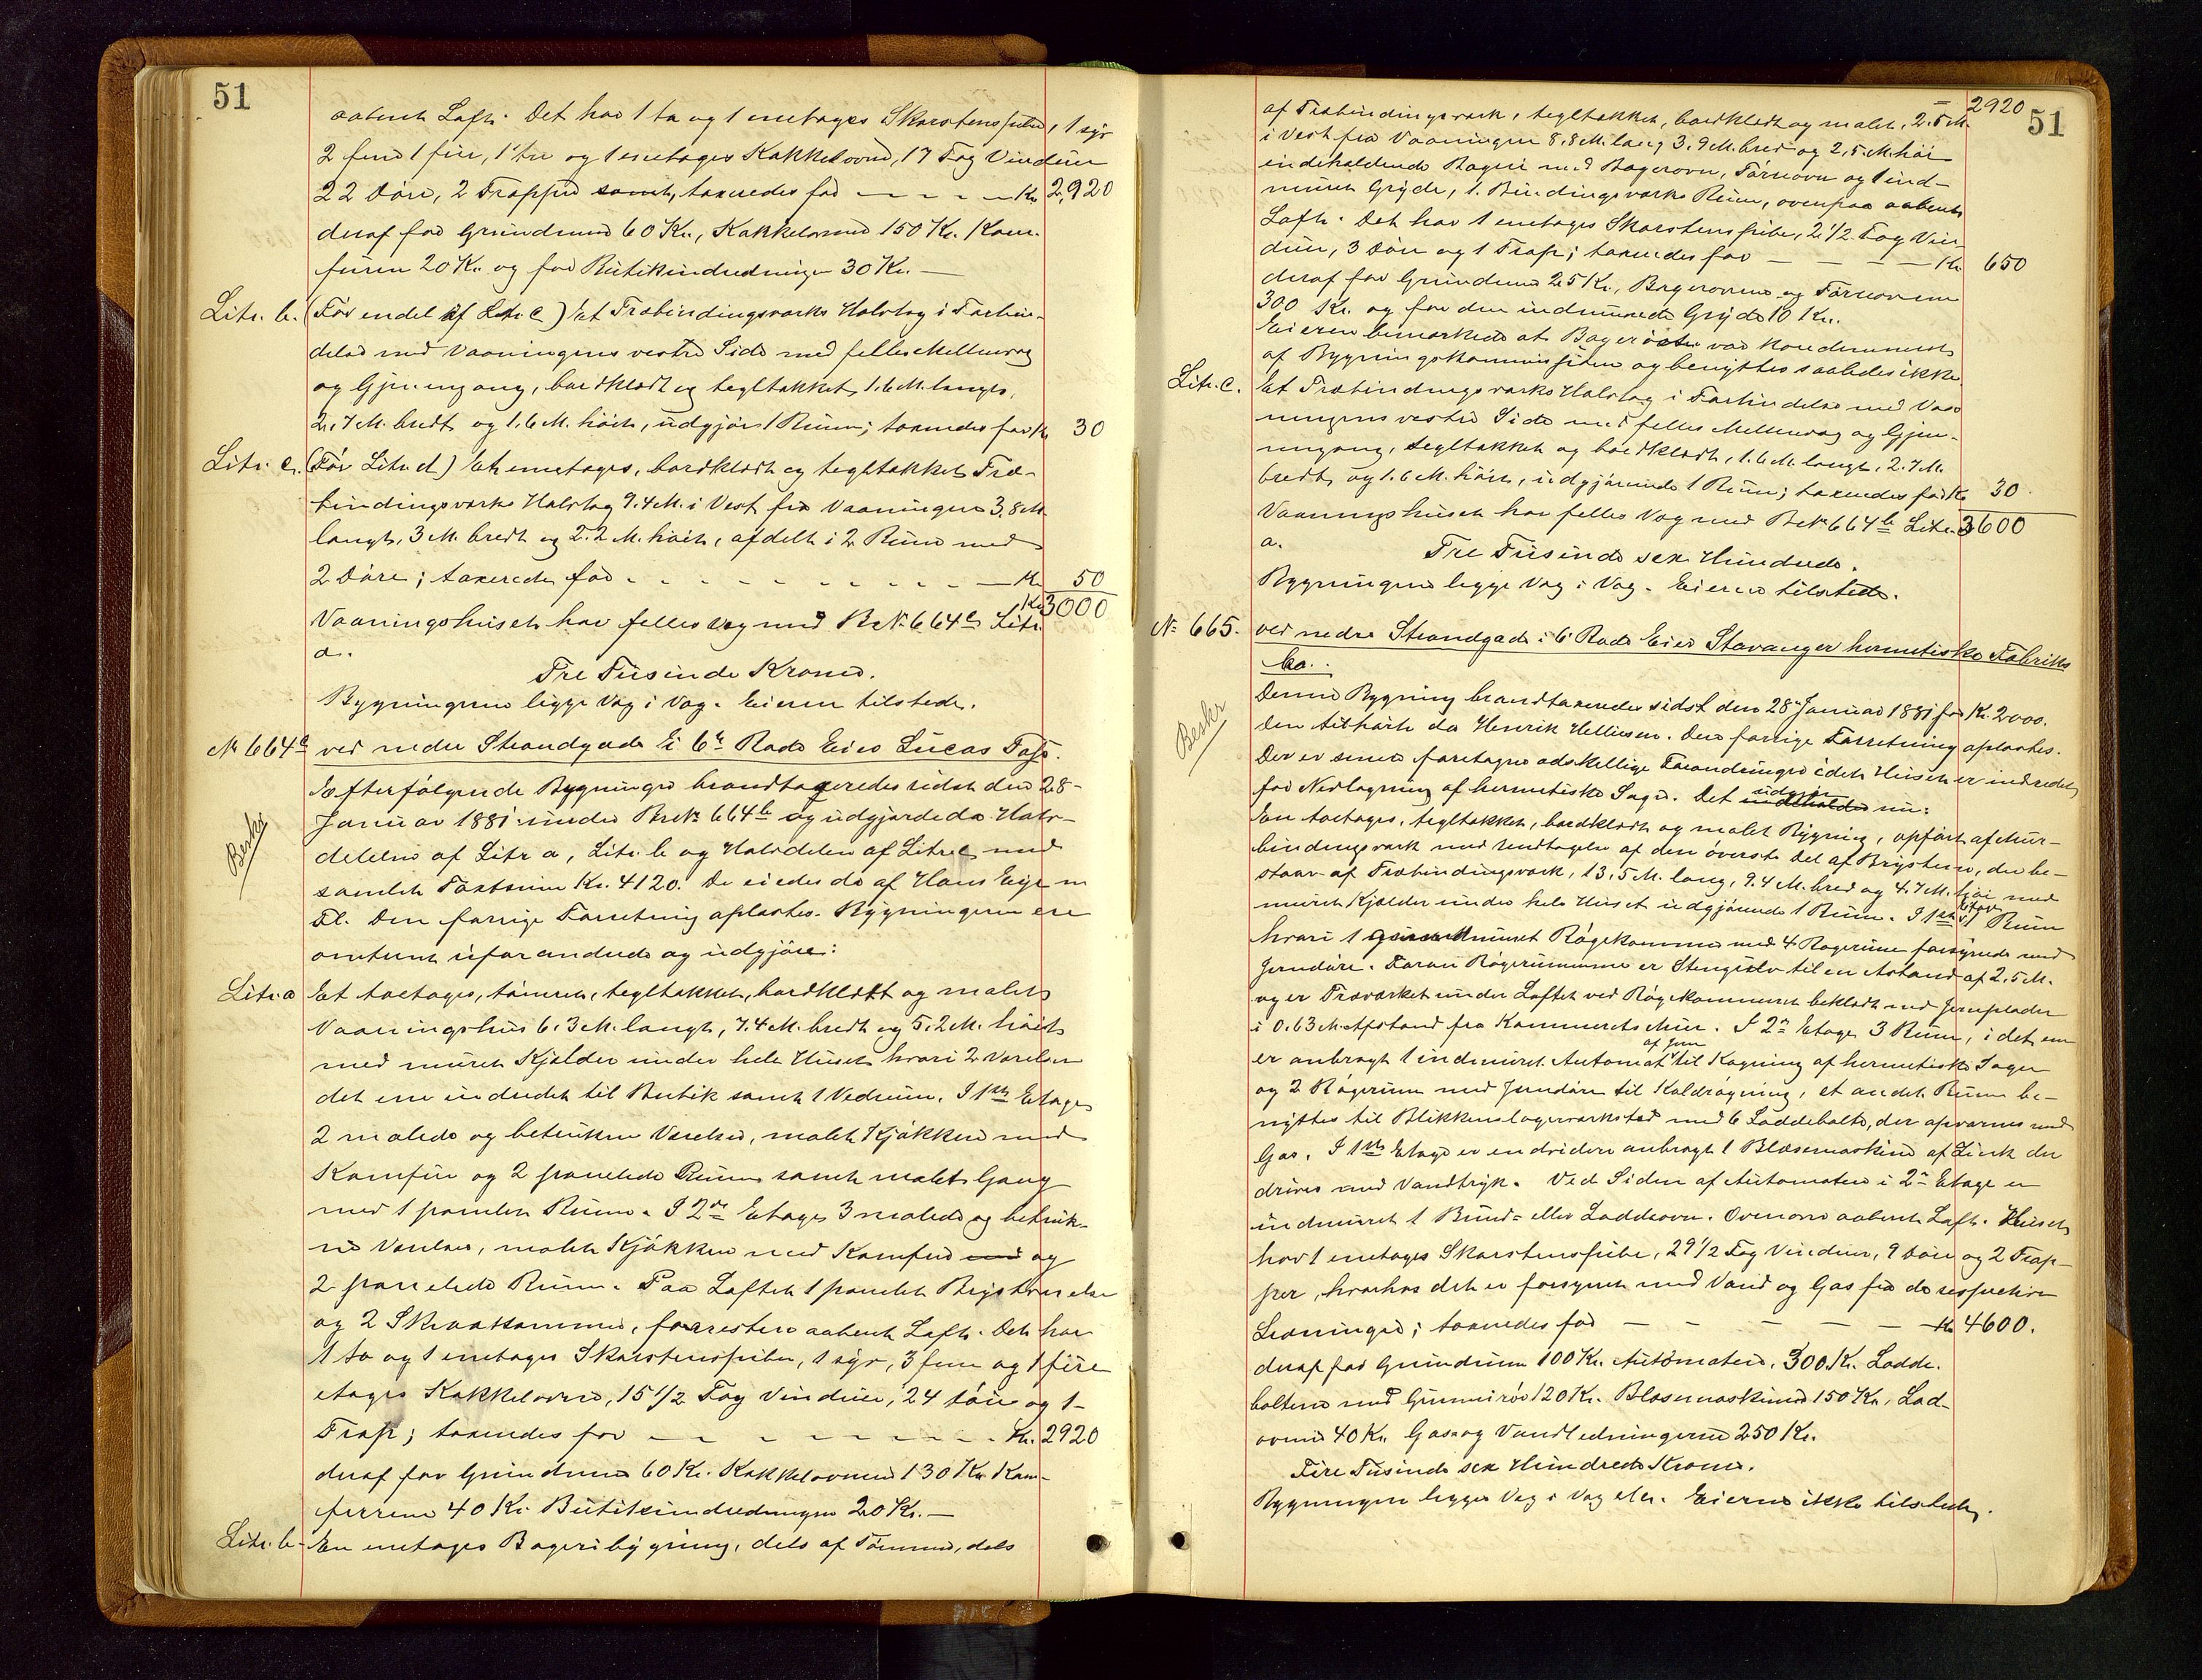 51
aabent Loft. Det har 1 to og 1 enetages Skorstenspibe, 1 syv
2 fem 1 fire, 1 tre og 1 enetages Kakkelovne, 17 Fag Vinduer
22 Døre, 2 Trapper samt, taxeredes for — — — — Kr. 2,920
deraf for Grundmur 60 Kr., Kakkelovne 150 Kr. Kom-
furen 20 Kr. og for Butikindredningen 30 Kr. —
Litr. b. (Før endel af Litr. c) Et Træbindingsværks Halvtag i Forbin-
delse med Vaaningens vestre Side med felles Mellemvæg
og Gjennemgang, bordklædt og tegltækket, 1.6 M. langt,
2.7 M. bredt og 1.6 M. høit, udgjør 1 Rum; taxeredes for Kr. 30
Litr. c. (Før Litr. d) Et enetages, bordklædt og tegltækket Træ-
bindingsværks Halvtag 9.4 M. i Vest fra Vaaningen 3.8 M.
langt, 3 M. bredt og 2.2 M. høit, afdelt i 2 Rum med
2 Døre; taxeredes for - - - - - - - - - Kr. 50
Kr. 3000
Vaaningshuset har felles Væg med BrNo. 664c Litr.
a.
Tre Tusinde Kroner.
Bygningerne ligge Væg i Væg. Eieren tilstede.
No. 664c ved nedre Strandgade i 6te Rode Eier Lucas Tofs.
Besker
Efterfølgende Bygninger brandtaxeredes sidst den 28-
Januar 1881 under BrNo. 664b og udgjorde da Halv-
delene af Litr. a, Litr. b og Halvdelen af Litr. c med
samlet Taxtsum Kr. 4120. De eiedes da af Hans Eige m
Fl. Den forrige Forretning aflæstes. Bygningerne ere
omtrent uforandrede og udgjøre:
Litr. a Et toetages, tømret, tegltækket, bordklædt og malet
Vaaningshus 6.3 M. langt, 7.4 M. bredt og 5.2 M. høit
med muret Kjelder under hele Huset hvori 2 Værelser
det ene indredet til Butik samt 1 Vedrum. I 1ste Etage
2 malede og betrukne Værelser, malet Kjøkken med
Komfur og 2 panelede Rum samt malet Gang
med 1 panelet Rum. I 2den Etage 3 malede og betruk-
ne Værelser, malet Kjøkken med Komfur og
2 panelede Rum. Paa Loftet 1 panelet Brystværelse
og 2 Skraakammer, forresten aabent Loft. Det har
1 to og 1 enetages Skorstenspibe, 1 syv, 3 fem og 1 fire
etages Kakkelovne, 15 1/2 Fag Vinduer, 24 Døre og 1-
Trap; taxeredes for — - - - - - - - Kr. 2920
deraf for Grundmur 60 Kr. Kakkelovnene 130 Kr. Kom-
furene 40 Kr. Butikindredningen 20 Kr. —
Litr. b- En enetages Bageribygning, dels af Tømmer, dels
51
2920
af Træbindingsværk, tegltækket, bordklædt og malet, 2.5 M.
i Vest fra Vaaningen 8,8 M. lang 3,9 M. bred og 2,5. M. høi
indeholdende Bageri med Bagerovn, Tørreovn og 1 ind-
muret Gryde, 1. Bindingsværks Rum, ovenpaa aabent
Loft. Det har 1 enetages Skorstenspibe, 2 1/2 Fag Vin-
duer, 3 Døre og 1 Trap; taxeredes for — — — — Kr. 650
deraf for Grundmur 25 Kr., Bagerovnen og Tørreovnen
300 Kr. og for den indmurede Gryde 10 Kr.
Eieren bemærkede at Bageriet var kondemneret
af Bygningskommissionen og benyttes saaledes ikke.
Litr. c. Et Træbindingsværks Halvtag i Forbindelse med Vaa-
ningens vestre Side med felles Mellemvæg og Gjen-
nemgang, tegltækket og bordklædt, 1.6 M. langt, 2.7 M.
bredt, og 1.6 M. høit, udgjørende 1 Rum; taxeredes for Kr. 30
Vaaningshuset har felles Væg med BrNo. 664b Litr. 3600
a.
Tre Tusinde sex Hundrede.
Bygningerne ligge Væg i Væg. Eieren tilstede.
No. 665. ved nedre Strandgade i 6 Rode Eier Stavanger hermetiske Fabriks
Co.
Besker
Denne Bygning brandtaxeredes sidst den 28 Januar 1881 for Kr. 2000.
Den tilhørte da Henrik Helliesen. Den forrige Forretning aflæstes.
Der er senere foretagne adskellige Forandringer idet Huset er indredet
for Nedlægning af hermetiske Sager. Det indeholder udgjør nu:
En toetages, tegltækket, bordklædt og malet Bygning, opført af Mur-
bindingsværk med Undtagelse af den øverste Del af Brystene, der be-
staar af Træbindingsværk, 13.5 M. lang, 9.4 M. bred og 4.7 M. høi med
muret Kjælder under hele Huset udgjørende 1 Rum. I 1ste Etage 1 Rum
hvori 1 muret Røgekammer med 4 Røgerum forsynede med
Jerndøre. Foran Røgerummene er Stengulv til en Afstand af 2.5 M.
og er Træværket under Loftet ved Røgekammeret beklædt med Jernplader
i 0.63 M. Afstand fra Kammerets Mur. I 2den Etage 3 Rum, i det ene
er anbragt 1 indmuret Automat af Jern til Kogning af hermetiske Sager
og 2 Røgerum med Jerndøre til Koldrøgning, et andet Rum be-
nyttes til Blikkenslagerværksted med 6 Loddebolte, der opvarmes med
Gas. I 1ste Etage er endvidere anbragt 1 Blæsemaskine af Zink der
drives med Vandtryk. Ved Siden af Automaten i 2den Etage er
indmuret 1 Bund- eller Loddeovn. Ovenover aabent Loft. Huset
har 1 enetages Skorstenspibe, 29 1/2 Fag Vinduer, 9 Døre og 2 Trap-
per, hvorhos det er forsynet med Vand og Gas fra de respective
Ledninger; taxeredes for — - - — — — Kr. 4600.
deraf for Grundmur 100 Kr. Automaten, 300 Kr. Lodde-
boltene med Gummirør 120 Kr. Blæsemaskinen 150 Kr, Lod-
ovnen 40 Kr. Gas- og Vandledningerne 250 Kr.
Fire Tusinde sex Hundrede Kroner.
Bygningen ligger Væg i Væg . Eierne ikke tilstede.